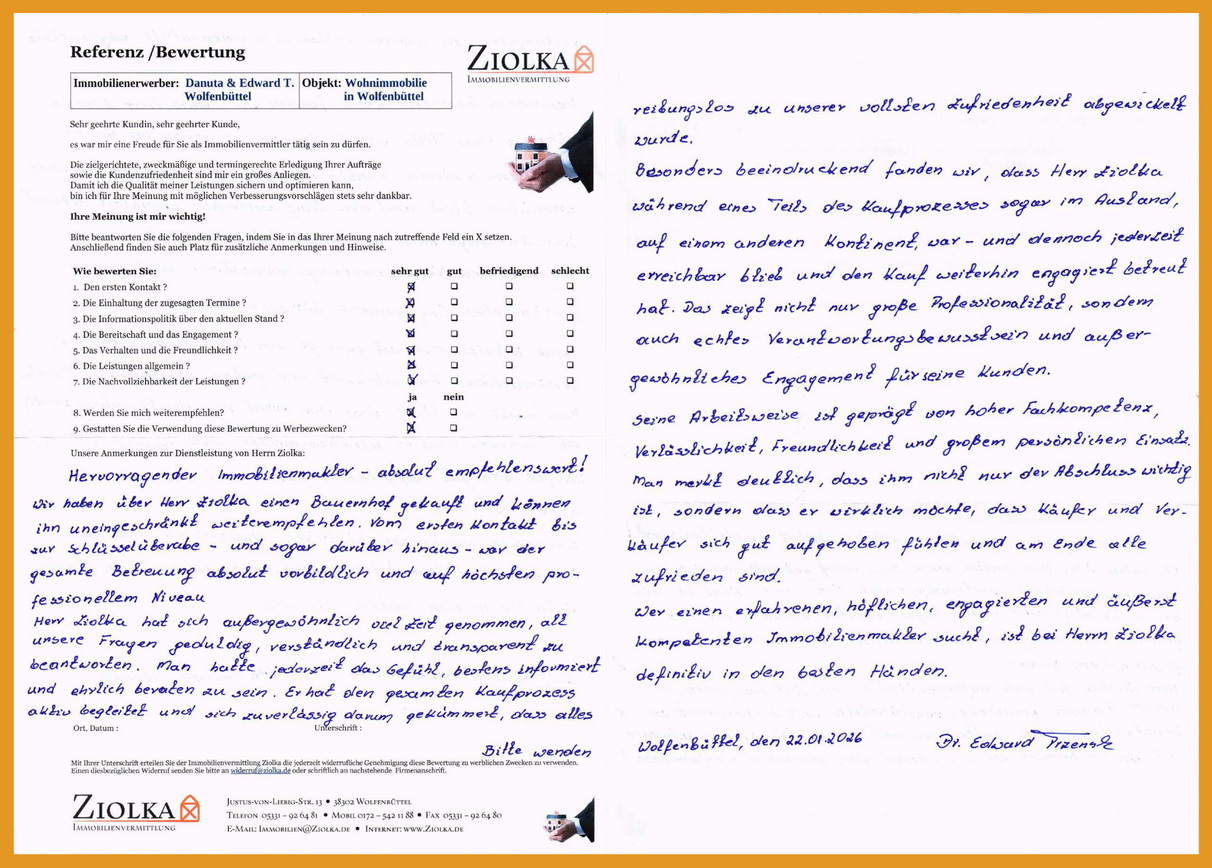 Referenz /Bewertung
ZIOLKA
IMMOBILIENVERMITTLUNG
Immobilienerwerber: Danuta & Edward T. Wolfenbüttel
Objekt: Wohnimmobilie in Wolfenbüttel
Sehr geehrte Kundin, sehr geehrter Kunde,
es war mir eine Freude für Sie als Immobilienvermittler tätig sein zu dürfen.
Die zielgerichtete, zweckmäßige und termingerechte Erledigung Ihrer Aufträge
sowie die Kundenzufriedenheit sind mir ein großes Anliegen.
Damit ich die Qualität meiner Leistungen sichern und optimieren kann,
bin ich für Ihre Meinung mit möglichen Verbesserungsvorschlägen stets sehr dankbar.
Ihre Meinung ist mir wichtig!
Bitte beantworten Sie die folgenden Fragen, indem Sie in das Ihrer Meinung nach zutreffende Feld ein X setzen.
Anschließend finden Sie auch Platz für zusätzliche Anmerkungen und Hinweise.
Wie bewerten Sie: sehr gut gut befriedigend schlecht
1. Den ersten Kontakt ?
2. Die Einhaltung der zugesagten Termine ?
3. Die Informationspolitik über den aktuellen Stand ?
4. Die Bereitschaft und das Engagement ?
5. Das Verhalten und die Freundlichkeit ?
6. Die Leistungen allgemein ?
7. Die Nachvollziehbarkeit der Leistungen ?
ja nein
8. Werden Sie mich weiterempfehlen?
9. Gestatten Sie die Verwendung diese Bewertung zu Werbezwecken?
Unsere Anmerkungen zur Dienstleistung von Herrn Ziolka:
Hervorragender Immobilienmakler – absolut empfehlenswert!
Wir haben über Herr Ziolka einen Bauernhof gekauft und können
ihn uneingeschränkt weiterempfehlen. Vom ersten Kontakt bis
zur Schlüsselüberabe – und sogar darüber hinaus – war der
gesamte Betreuung absolut vorbildlich und auf höchsten pro-
fessionellem Niveau
Herr Ziolka hat sich außergewöhnlich viel Zeit genommen, all
unsere Fragen geduldig, verständlich und transparent zu
beantworten. Man hatte jederzeit das Gefühl, bestens informiert
und ehrlich beraten zu sein. Er hat den gesamten Kaufprozess
aktiv begleitet und sich zuverlässig darum gekümmert, dass alles
Ort, Datum : Unterschrift :
Bitte wenden
Mit Ihrer Unterschrift erteilen Sie der Immobilienvermittlung Ziolka die jederzeit widerrufliche Genehmigung diese Bewertung zu werblichen Zwecken zu verwenden.
Einen diesbezüglichen Widerruf senden Sie bitte an widerruf@ziolka.de oder schriftlich an nachstehende Firmenanschrift.
ZIOLKA
IMMOBILIENVERMITTLUNG
JUSTUS-VON-LIEBIG-STR. 13 • 38302 WOLFENBÜTTEL
TELEFON 05331 – 92 64 81 • MOBIL 0172 – 542 11 88 • FAX 05331 – 92 64 80
E-MAIL: IMMOBILIEN@ZIOLKA.DE • INTERNET: WWW.ZIOLKA.DE
reibungslos zu unserer vollsten Zufriedenheit abgewickelt
wurde.
Besonders beeindruckend fanden wir, dass Herr Ziolka
während eines Teils des Kaufprozesses sogar im Ausland,
auf einem anderen Kontinent, war – und dennoch jederzeit
erreichbar blieb und den Kauf weiterhin engagiert betreut
hat. Das zeigt nicht nur große Professionalität, sondern
auch echtes Verantwortungsbewusstsein und außer-
gewöhnliches Engagement für seine Kunden.
Seine Arbeitsweise ist geprägt von hoher Fachkompetenz,
Verlässlichkeit, Freundlichkeit und großem persönlichen Einsatz.
Man merkt deutlich, dass ihm nicht nur der Abschluss wichtig
ist, sondern dass er wirklich möchte, dass Käufer und Ver-
käufer sich gut aufgehoben fühlen und am Ende alle
zufrieden sind.
Wer einen erfahrenen, höflichen, engagierten und äußerst
kompetenten Immobilienmakler sucht, ist bei Herrn Ziolka
definitiv in den besten Händen.
Wolfenbüttel, den 22.01.2026 Dr. Edward